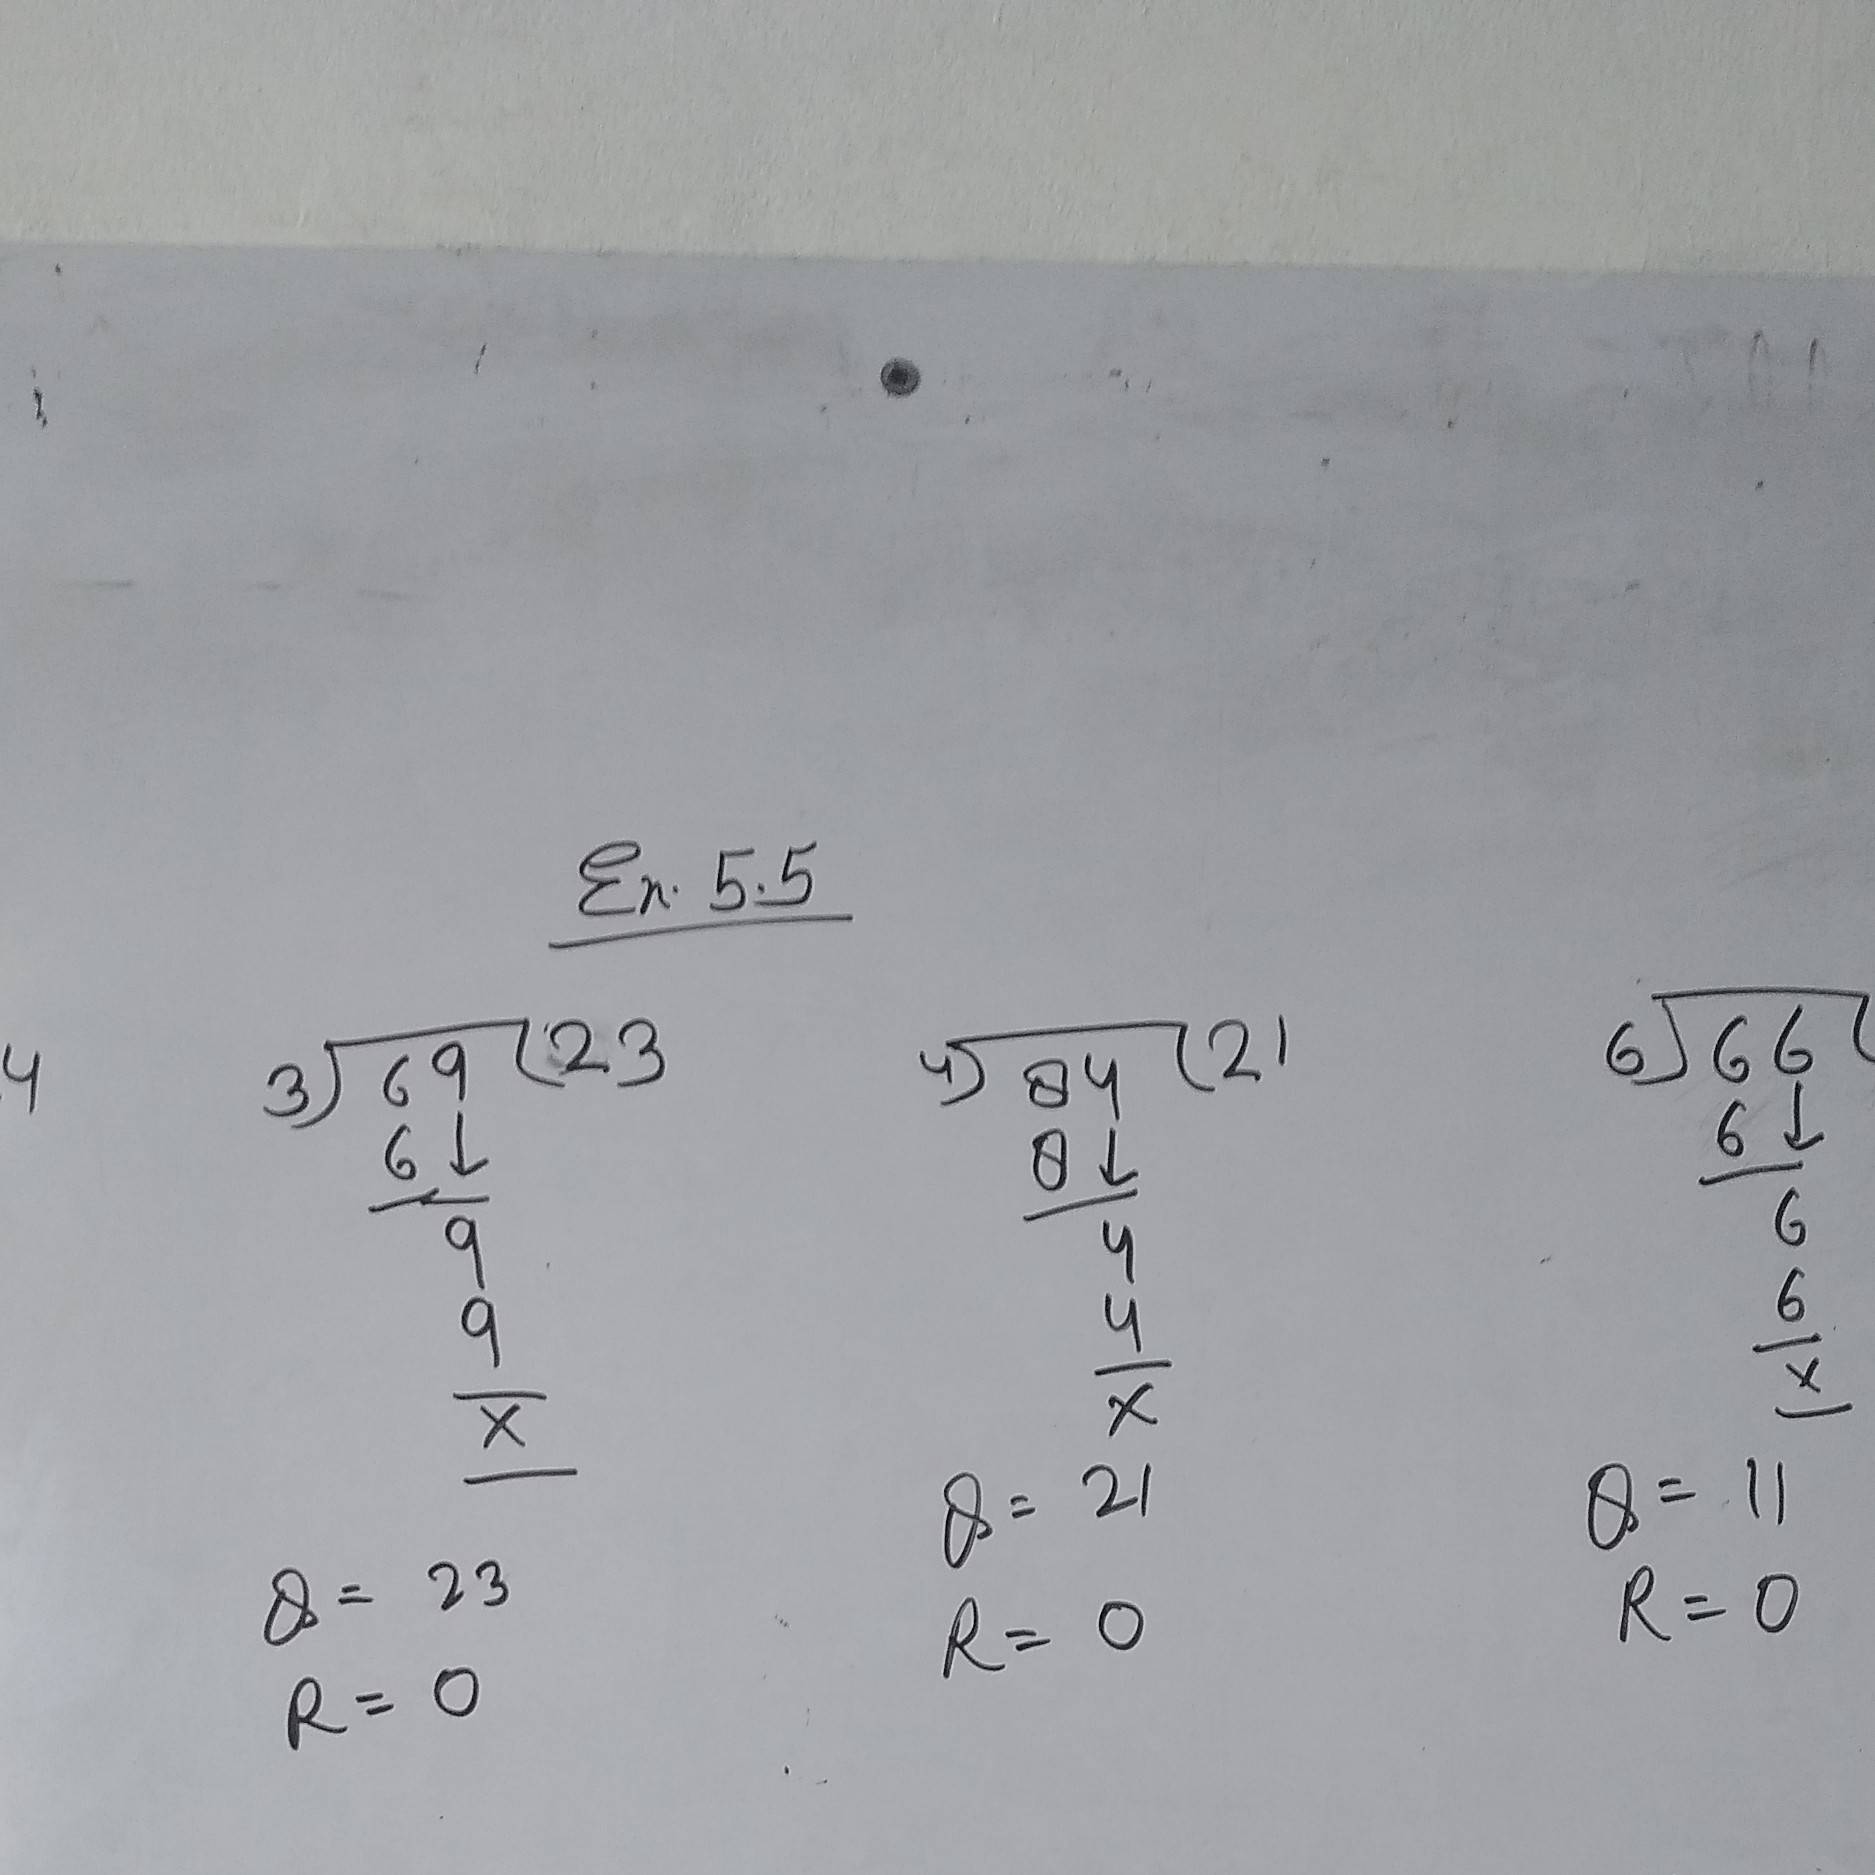 Ex. 5.5
4
3) 69 (23
6↓
9
9
x
Q = 23
R = 0
4) 84 (21
8↓
4
4
x
Q = 21
R = 0
6) 66 (
6↓
6
6
x
Q = 11
R = 0